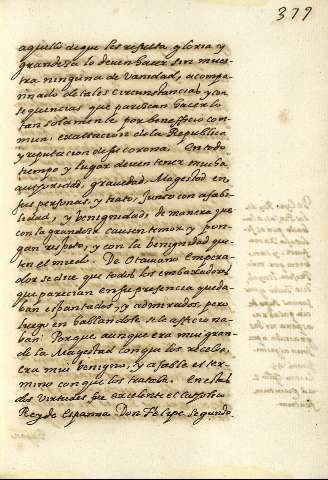 379
aquello de que les resulta gloria y
grandeza lo deven hacer sin mues-
tra ninguna de Vanidad, acompa-
ñnado de tales circunstancias, y con
sequencias que parescan hacerlo
tan solamente por beneficio co-
mun, exaltacion de la Republica
y reputacion de su corona. En todo
tiempo y lugar deven tener mucha
autoridad, gravedad, Magestad en
sus personas, y trato, junto con afabi-
lidad, y venignidad, de manera que
con la grandeza causen temor y pon-
gan respeto, y con la benignidad qui-
ten el miedo. De Otauano Empera-
dor se dice que todos los embaxadores
que parecian en su presencia queda-
ban espantados, y admirados, pero
luego en hablandole se le afficiona-
ban. Porque aunque era muy gran-
de la Magestad con que los recebia,
era mui benigno, y afable el ter-
mino con que los trataba. En estas
dos Virtudes fue excelente el catholico
Rey de Espanna Don Felipe segundo.